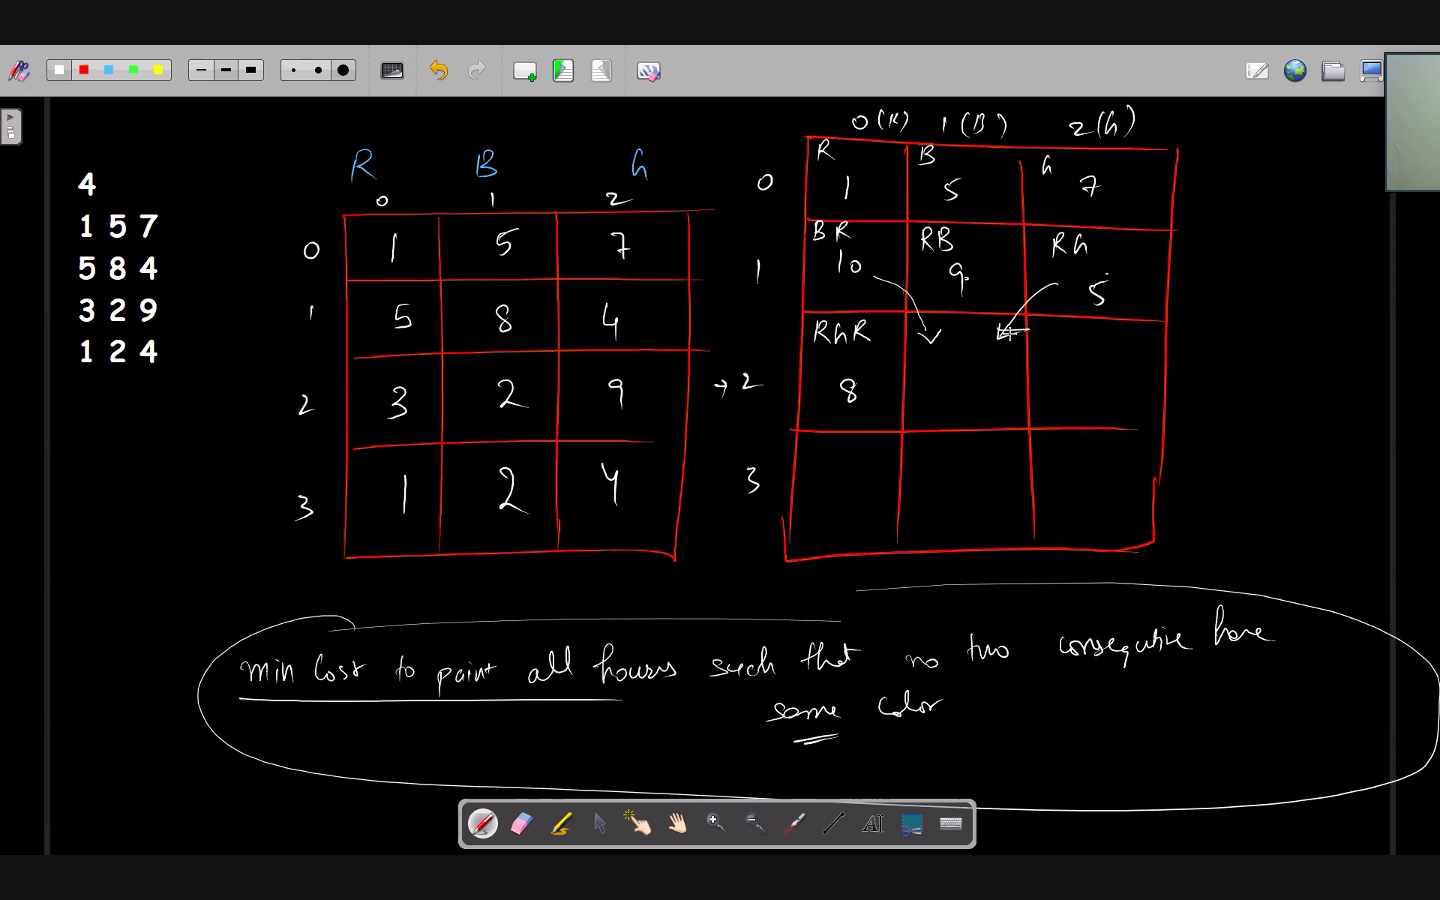 4
1 5 7
5 8 4
3 2 9
1 2 4
R B G
0 1 2
0 1 5 7
1 5 8 4
2 3 2 9
3 1 2 4
0(R) 1(B) 2(G)
R B G
0 1 5 7
BR RB RG
1 10 9 5
RGR
2 8
3
min Cost to paint all houses such that no two consequtive have
same color
AI